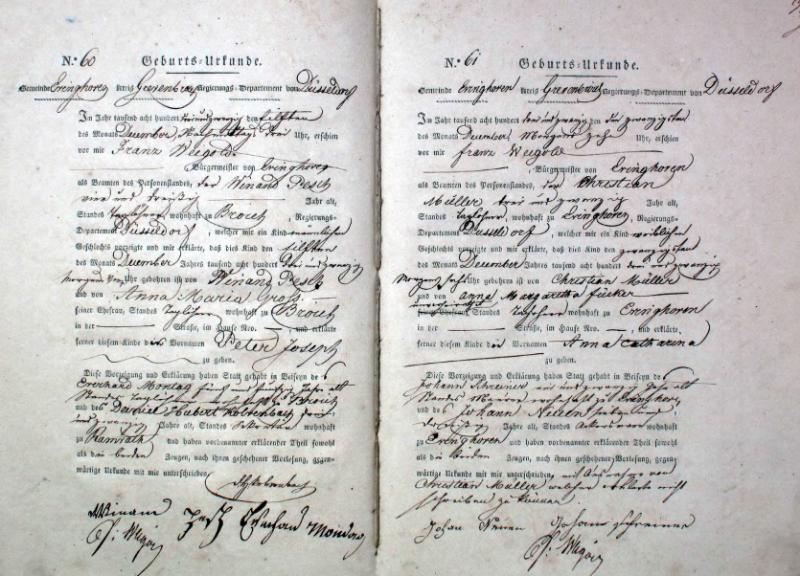 N.º 60 Geburts-Urkunde.
Gemeinde Evinghoven Kreis Regierungs-Departement von Düsseldorf
Im Jahr tausend acht hundert drei und zwanzig den eilften
des Monats December Nachmittags drei Uhr, erschien
vor mir Franz Weigold
, Bürgermeister von Evinghoven
als Beamten des Personenstandes, der Winand Pesch
vier und dreißig Jahr alt,
Standes Taglöhner wohnhaft zu Broich, Regierungs-
Departement Düsseldorf, welcher mir ein Kind männlichen
Geschlechts vorzeigte und mir erklärte, daß dies Kind den eilften
des Monats December Jahres tausend acht hundert drei und zwanzig
Morgens Uhr gebohren ist von Winand Pesch
und von Anna Maria Gross
seiner Ehefrau, Standes Taglöhner wohnhaft zu Broich
in der Straße, im Hause Nro. , und erklärte
ferner diesem Kinde die Vornamen Peter Joseph
zu geben.
Diese Vorzeigung und Erklärung haben Statt gehabt in Beiseyn des
Everhard Montag fünf und fünfzig Jahr alt
Standes Taglöhner wohnhaft zu Broich
und des Daniel Hubert
und zwanzig Jahre alt, Standes wohnhaft
zu Ramrath und haben vorbenannter erklärender Theil sowohl
als die beiden Zeugen, nach ihnen geschehener Vorlesung, gegen-
wärtige Urkunde mit mir unterschrieben
Winand Pesch Everhard Montag
N.º 61 Geburts-Urkunde.
Gemeinde Evinghoven Kreis Regierungs-Departement von Düsseldorf
Im Jahr tausend acht hundert drei und zwanzig den zwanzigsten
des Monats December Morgens zehn Uhr, erschien
vor mir Franz Weigold
, Bürgermeister von Evinghoven
als Beamten des Personenstandes, der Christian
Müller drei und zwanzig Jahr alt,
Standes Taglöhner, wohnhaft zu Evinghoven, Regierungs-
Departement Düsseldorf, welcher mir ein Kind weiblichen
Geschlechts vorzeigte und mir erklärte, daß dies Kind den zwanzigsten
des Monats December Jahres tausend acht hundert drei und zwanzig
Morgens Uhr gebohren ist von Christian Müller
und von Anna Margaretha
Standes Taglöhner wohnhaft zu Evinghoven
in der Straße, im Hause Nro. , und erklärte
ferner diesem Kinde die Vornamen Anna Catharina
zu geben.
Diese Vorzeigung und Erklärung haben Statt gehabt in Beiseyn des
Johann Schreiner und zwanzig Jahr alt
Standes wohnhaft zu Evinghoven
und des Johann
dreißig Jahre alt, Standes Ackersmann wohnhaft
zu Evinghoven und haben vorbenannter erklärender Theil sowohl
als die beiden Zeugen, nach ihnen geschehener Vorlesung, gegen-
wärtige Urkunde mit mir unterschrieben, mit Ausnahme von
Christian Müller welcher erklärte nicht
schreiben zu können.
Johann Schreiner